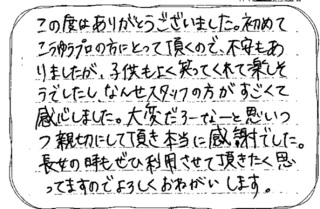 この度はありがとうございました。初めて
こうゆうプロの方にとって頂くので、不安もあ
りましたが、子供もよく笑ってくれて楽しそ
うでしたし、なんせスタッフの方がすごくて
感心しました。大変だろーなーと思いつ
つ親切にして頂き本当に感謝でした。
長女の時もぜひ利用させて頂きたく思
ってますのでよろしくおねがいします。